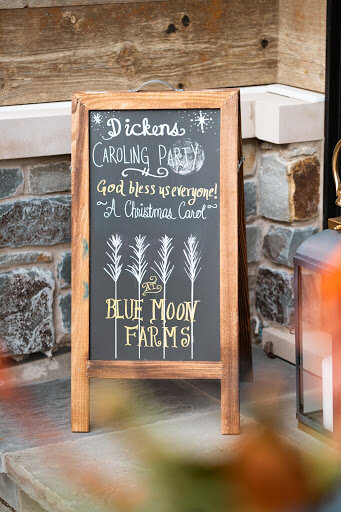 Dickens
CAROLING PARTY
God bless us everyone!
A Christmas Carol
AT
BLUE MOON
FARMS